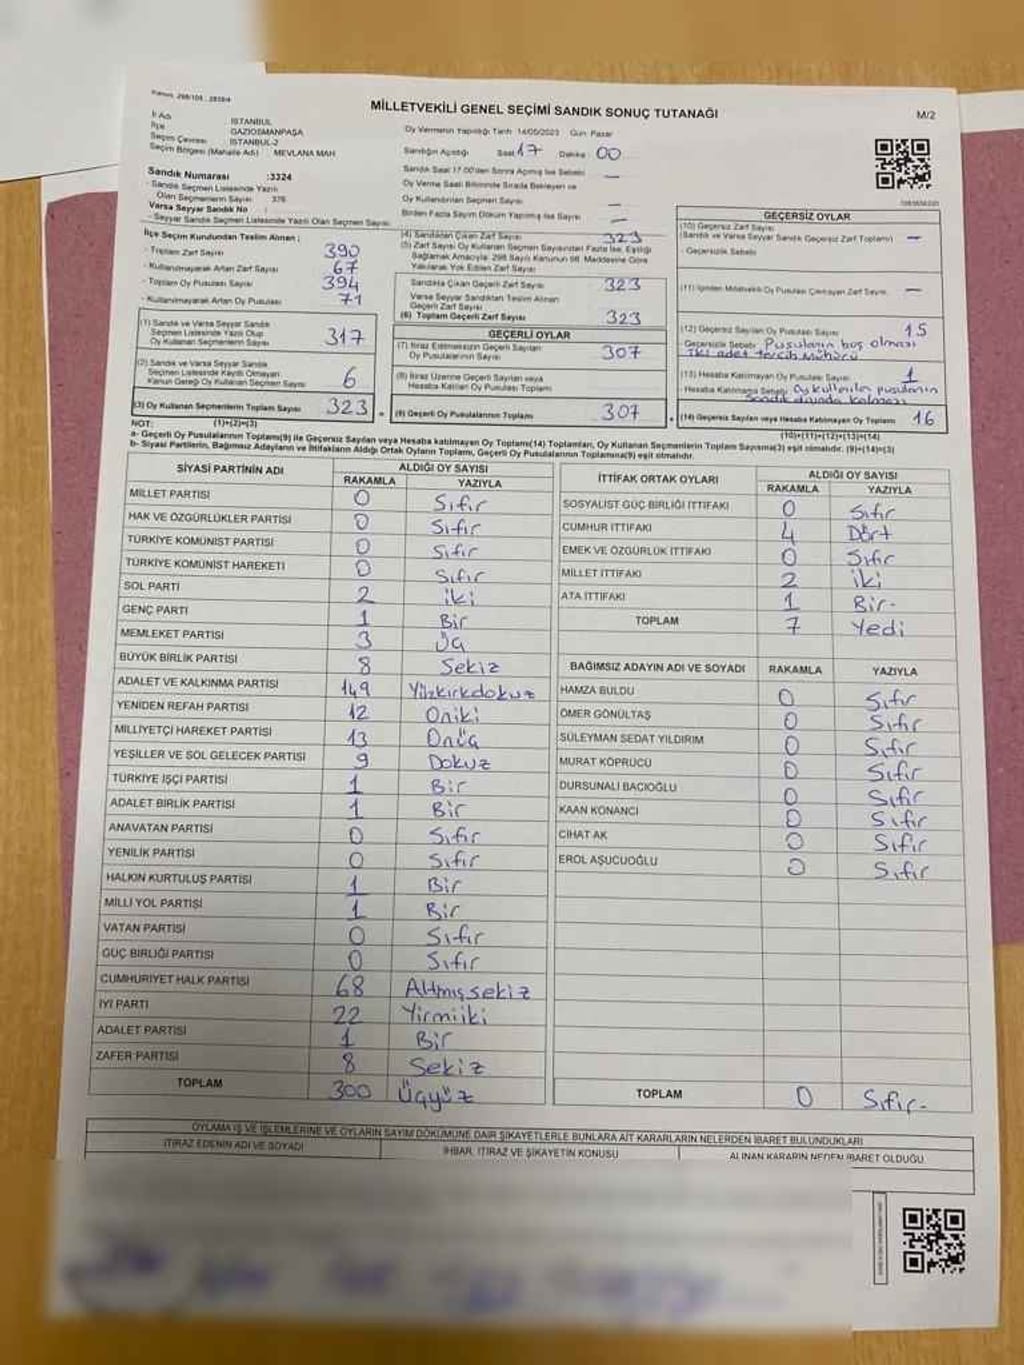 MİLLETVEKİLİ GENEL SEÇİMİ SANDIK SONUÇ TUTANAĞI
M/2
İl Adı : İSTANBUL
İlçe : GAZİOSMANPAŞA
Seçim Çevresi : İSTANBUL-2
Seçim Bölgesi (Mahalle Adı) : MEVLANA MAH
Sandık Numarası :3324
- Sandık Seçmen Listesinde Yazılı
Olan Seçmenlerin Sayısı : 376
Varsa Seyyar Sandık No :
- Seyyar Sandık Seçmen Listesinde Yazılı Olan Seçmen Sayısı
İlçe Seçim Kurulundan Teslim Alınan ;
- Toplam Zarf Sayısı 390
- Kullanılmayarak Artan Zarf Sayısı 67
- Toplam Oy Pusulası 394
- Kullanılmayarak Artan Oy Pusulası 71
(1) Sandık ve Varsa Seyyar Sandık
Seçmen Listesinde Yazılı Olup
Oy Kullanan Seçmenlerin Sayısı 317
(2) Sandık ve Varsa Seyyar Sandık
Seçmen Listesinde Kayıtlı Olmayan
Kanun Gereği Oy Kullanan Seçmen Sayısı 6
(3) Oy Kullanan Seçmenlerin Toplam Sayısı 323
(1)+(2)=(3)
Oy Vermenin Yapıldığı Tarih 14/05/2023 Gün: Pazar
Sandığın Açıldığı Saat 17 Dakika 00
Sandık Saat 17.00'den Sonra Açılmış İse Sebebi —
Oy Verme Saati Bitiminde Sırada Bekleyen ve
Oy Kullandırılan Seçmen Sayısı —
Birden Fazla Sayım Döküm Yapılmış İse Sayısı —
(4) Sandıktan Çıkan Zarf Sayısı 323
(5) Zarf Sayısı Oy Kullanan Seçmen Sayısından Fazla İse, Eşitliği
Sağlamak Amacıyla, 298 Sayılı Kanunun 98. Maddesine Göre
Yakılarak Yok Edilen Zarf Sayısı
Sandıkta Çıkan Geçerli Zarf Sayısı 323
Varsa Seyyar Sandıktan Teslim Alınan
Geçerli Zarf Sayısı
(6) Toplam Geçerli Zarf Sayısı 323
GEÇERLİ OYLAR
(7) İtiraz Edilmeksizin Geçerli Sayılan
Oy Pusulalarının Sayısı 307
(8) İtiraz Üzerine Geçerli Sayılan veya
Hesaba Katılan Oy Pusulası Toplamı
(9) Geçerli Oy Pusulalarının Toplamı 307
GEÇERSİZ OYLAR
(10) Geçersiz Zarf Sayısı
(Sandık ve Varsa Seyyar Sandık Geçersiz Zarf Toplamı) —
- Geçersizlik Sebebi
(11) İçinden Milletvekili Oy Pusulası Çıkmayan Zarf Sayısı —
(12) Geçersiz Sayılan Oy Pusulası Sayısı 15
- Geçersizlik Sebebi Pusulanın boş olması
İki adet tercih mühürü
(13) Hesaba Katılmayan Oy Pusulası Sayısı 1
- Hesaba Katılmama Sebebi pusulanın
(14) Geçersiz Sayılan veya Hesaba Katılmayan Oy Toplamı 16
(10)+(11)+(12)+(13)=(14)
NOT:
a- Geçerli Oy Pusulalarının Toplamı(9) ile Geçersiz Sayılan veya Hesaba katılmayan Oy Toplamı(14) Toplamları, Oy Kullanan Seçmenlerin Toplam Sayısına(3) eşit olmalıdır. (9)+(14)=(3)
b- Siyasi Partilerin, Bağımsız Adayların ve İttifakların Aldığı Ortak Oyların Toplamı, Geçerli Oy Pusulalarının Toplamına(9) eşit olmalıdır.
SİYASİ PARTİNİN ADI ALDIĞI OY SAYISI
RAKAMLA YAZIYLA
MİLLET PARTİSİ 0 Sıfır
HAK VE ÖZGÜRLÜKLER PARTİSİ 0 Sıfır
TÜRKİYE KOMÜNİST PARTİSİ 0 Sıfır
TÜRKİYE KOMÜNİST HAREKETİ 0 Sıfır
SOL PARTİ 2 iki
GENÇ PARTİ 1 Bir
MEMLEKET PARTİSİ 3 Üç
BÜYÜK BİRLİK PARTİSİ 8 Sekiz
ADALET VE KALKINMA PARTİSİ 149 Yüzkırkdokuz
YENİDEN REFAH PARTİSİ 12 Oniki
MİLLİYETÇİ HAREKET PARTİSİ 13 Onüç
YEŞİLLER VE SOL GELECEK PARTİSİ 9 Dokuz
TÜRKİYE İŞÇİ PARTİSİ 1 Bir
ADALET BİRLİK PARTİSİ 1 Bir
ANAVATAN PARTİSİ 0 Sıfır
YENİLİK PARTİSİ 0 Sıfır
HALKIN KURTULUŞ PARTİSİ 1 Bir
MİLLİ YOL PARTİSİ 1 Bir
VATAN PARTİSİ 0 Sıfır
GÜÇ BİRLİĞİ PARTİSİ 0 Sıfır
CUMHURİYET HALK PARTİSİ 68 Altmışsekiz
İYİ PARTİ 22 Yirmiiki
ADALET PARTİSİ 1 Bir
ZAFER PARTİSİ 8 Sekiz
TOPLAM 300 Üçyüz
İTTİFAK ORTAK OYLARI ALDIĞI OY SAYISI
RAKAMLA YAZIYLA
SOSYALİST GÜÇ BİRLİĞİ İTTİFAKI 0 Sıfır
CUMHUR İTTİFAKI 4 Dört
EMEK VE ÖZGÜRLÜK İTTİFAKI 0 Sıfır
MİLLET İTTİFAKI 2 iki
ATA İTTİFAKI 1 Bir-
TOPLAM 7 Yedi
BAĞIMSIZ ADAYIN ADI VE SOYADI RAKAMLA YAZIYLA
HAMZA BULDU 0 Sıfır
ÖMER GÖNÜLTAŞ 0 Sıfır
SÜLEYMAN SEDAT YILDIRIM 0 Sıfır
MURAT KÖPRÜCÜ 0 Sıfır
DURSUNALİ BACIOĞLU 0 Sıfır
KAAN KONANCI 0 Sıfır
CİHAT AK 0 Sıfır
EROL AŞUCUOĞLU 0 Sıfır
TOPLAM 0 Sıfır-
OYLAMA İŞ VE İŞLEMLERİNE VE OYLARIN SAYIM DÖKÜMÜNE DAİR ŞİKAYETLERLE BUNLARA AİT KARARLARIN NELERDEN İBARET BULUNDUKLARI
İTİRAZ EDENİN ADI VE SOYADI İHBAR, İTİRAZ VE ŞİKAYETİN KONUSU ALINAN KARARIN NEDEN İBARET OLDUĞU